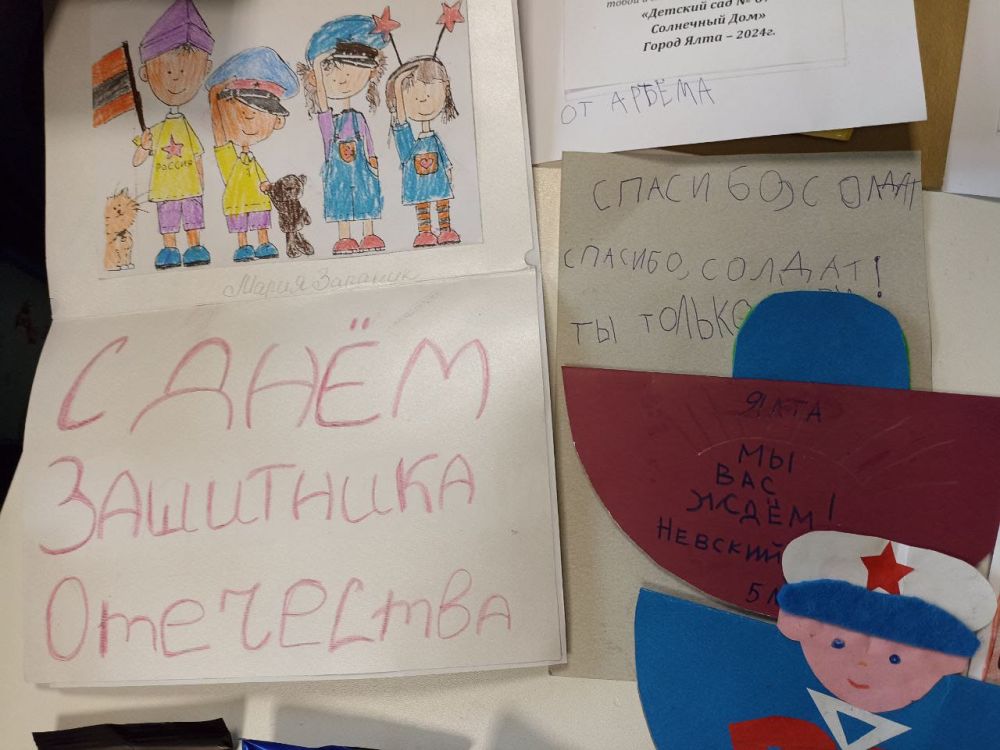 РОССИЯ
Мария
С ДНЁМ
ЗАЩИТНИКА
ОТЕЧЕСТВА
«Детский сад №
Солнечный Дом»
Город Ялта – 2024г.
ОТ АРТЁМА
СПАСИБО, СОЛДАТ
СПАСИБО, СОЛДАТ!
ТЫ ТОЛЬКО
ЯЛТА
МЫ
ВАС
ЖДЁМ!
НЕВСКИЙ
5